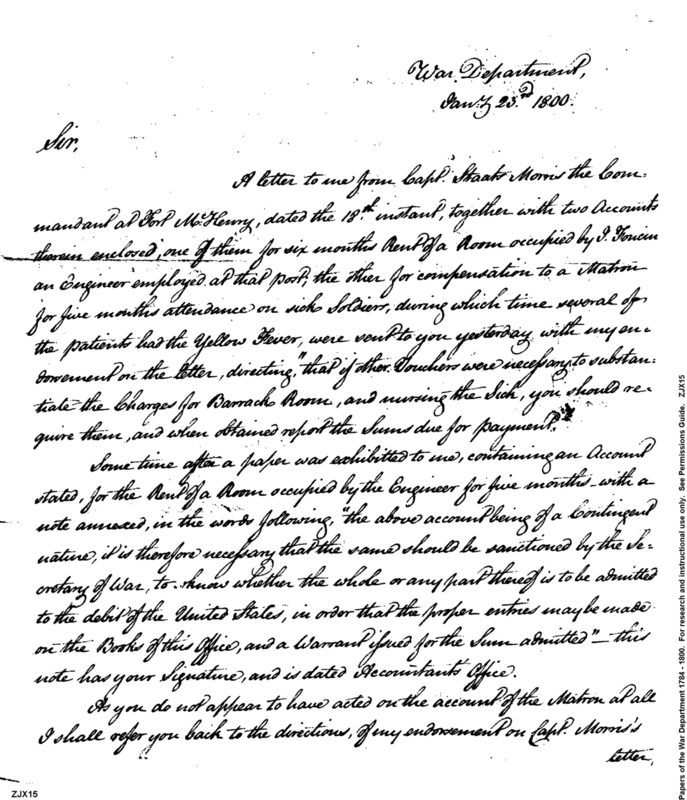 War Department,
Jan.y 23.rd 1800.
Sir,
A letter to me from Capt. Staats Morris the Com-
mandant at Fort McHenry, dated the 18th instant, together with two Accounts
therein enclosed, one of them for six months Rent of a Room occupied by J. Foncin
an Engineer employed at that post, the other for compensation to a Matron
for five months attendance on sick Soldiers, during which time several of
the patients had the Yellow Fever, were sent to you yesterday with my en-
dorsement on the letter, directing, "that if other Vouchers were necessary to substan-
tiate the Charges for Barrack Room, and nursing the Sick, you should re-
quire them, and when obtained report the Sums due for payment."
Some time after a paper was exhibited to me, containing an Account
stated, for the Rent of a Room occupied by the Engineer for five months - with a
note annexed, in the words following, "the above account being of a Contingent
nature, it is therefore necessary that the same should be sanctioned by the Se-
cretary of War, to know whether the whole or any part thereof is to be admitted
to the debit of the United States, in order that the proper entries may be made
on the Books of this Office, and a Warrant issued for the Sum admitted" - this
note has your Signature, and is dated Accountants Office.
As you do not appear to have acted on the account of the Matron at all
I shall refer you back to the directions, of my endorsement on Capt. Morris's
letter,
ZJX15
Papers of the War Department 1784 - 1800. For research and instructional use only. See Permissions Guide. ZJX15